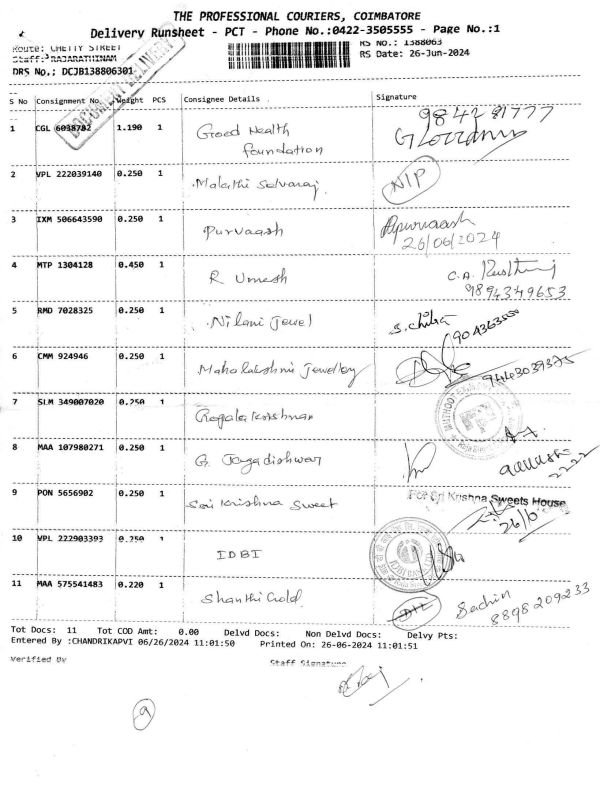 THE PROFESSIONAL COURIERS, COIMBATORE
Delivery Runsheet - PCT - Phone No.:0422-3505555 - Page No.:1
Route: CHETTY STREET
RS No.: 1388063
Staff: RAJARATHINAM
RS Date: 26-Jun-2024
DRS No.; DCJB138806301
DOCUMENT DELIVERY
S No Consignment No. Weight PCS Consignee Details Signature
1 CGL 6038782 1.190 1 Good Health foundation 984281777
2 VPL 222039140 0.250 1 Malathi Selvaraj NIP
3 IXM 506643590 0.250 1 Purvaash Apurvaash
26/06/2024
4 MTP 1304128 0.450 1 R Umesh C.A.
9894349653
5 RMD 7028325 0.250 1 Nilani Jewel S. Chitra
6 CMM 924946 0.250 1 Mahalakshmi Jewellery 9443039375
7 SLM 349007020 0.250 1 Gopala Krishnan
8 MAA 107980271 0.250 1 G. Jagadishwar
9 PON 5656902 0.250 1 Sri Krishna Sweet For Sri Krishna Sweets House
26/6
10 VPL 222903393 0.250 1 IDBI
11 MAA 575541483 0.220 1 Shanthi Gold Sachin
8898209233
Tot Docs: 11 Tot COD Amt: 0.00 Delvd Docs: Non Delvd Docs: Delvy Pts:
Entered By :CHANDRIKAPVI 06/26/2024 11:01:50 Printed On: 26-06-2024 11:01:51
Verified By Staff Signature
9